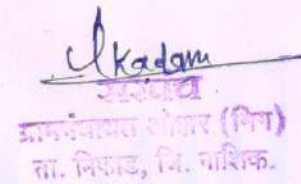 Skadam
सरपंच
ग्रामपंचायत ओझर (मिग)
ता. निफाड, जि. नाशिक.